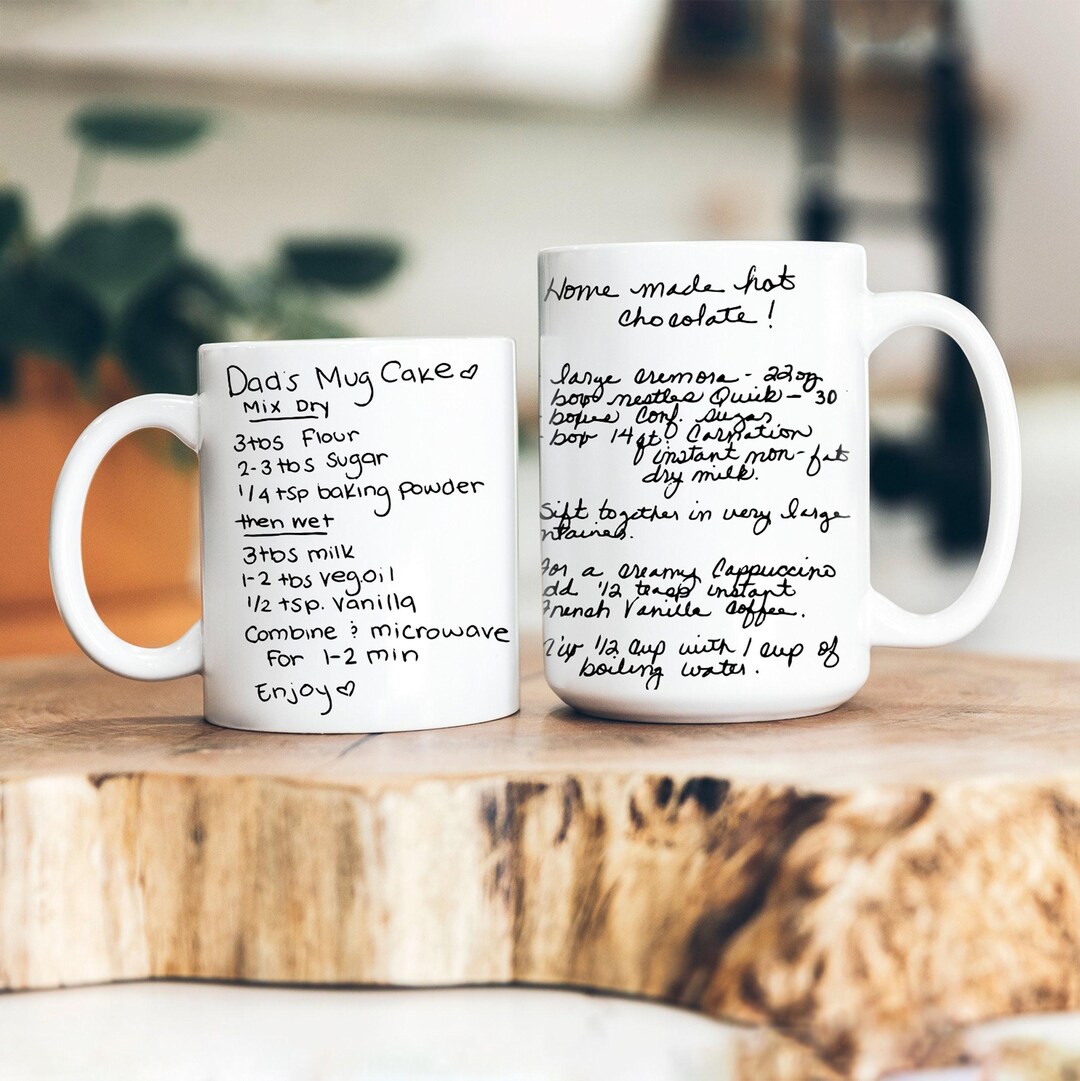 Dad's Mug Cake
Mix Dry
3tbs Flour
2-3 tbs sugar
1/4 tsp baking powder
then wet
3tbs milk
1-2 tbs veg.oil
1/2 tsp. vanilla
Combine & microwave
For 1-2 min
Enjoy
Home made hot
chocolate!
large cremora - 22 oz
box nestles Quick - 30
boxes conf. sugar
box 14 qt. Carnation
instant non-fat
dry milk.
Sift together in very large
ntainer.
For a creamy Cappuccino
dd 1/2 teasp instant
French Vanilla coffee.
1/2 cup with 1 cup of
boiling water.